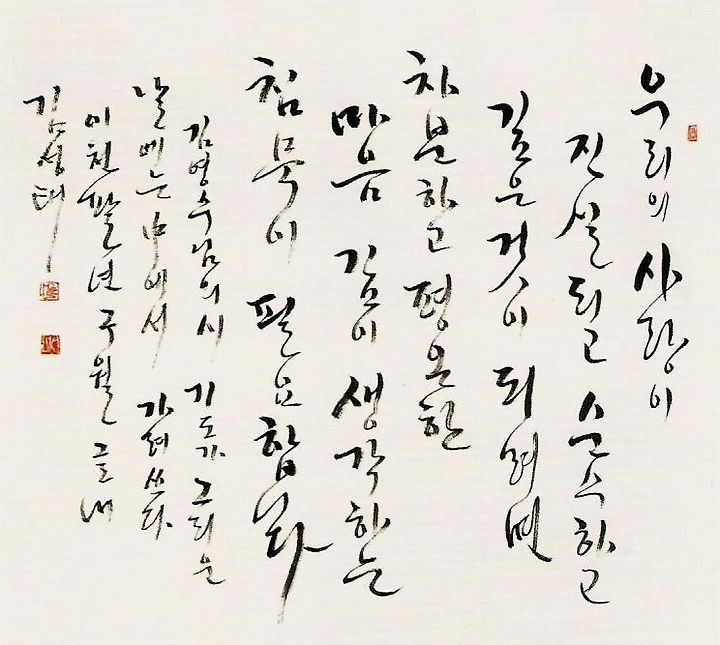 우리의 사랑이
진실되고 순수하고
깊은 것이 되려면
차분하고 평온한
마음 깊이 생각하는
침묵이 필요합니다
김영수님의 시 기도가 그리운
날에는 中에서 가려 쓰다
이천팔년 구월 그믐에
김성태